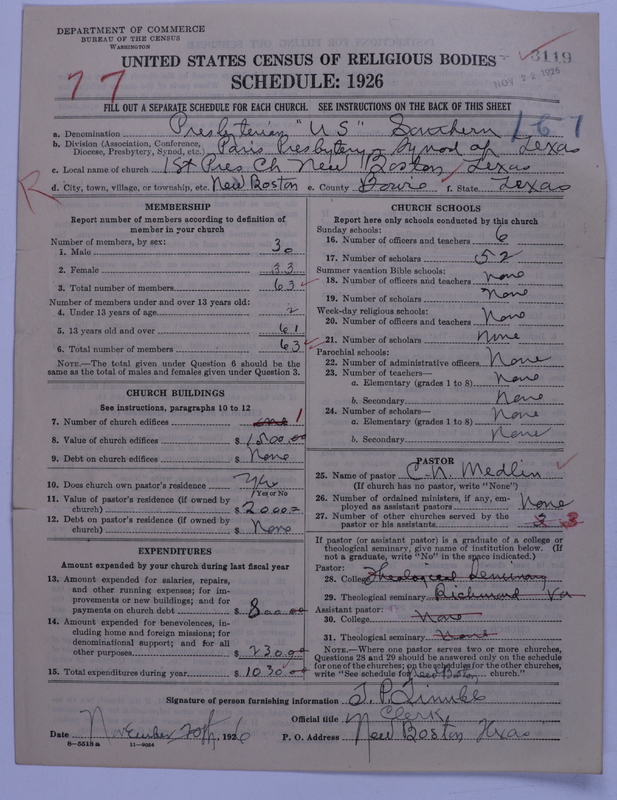 DEPARTMENT OF COMMERCE
BUREAU OF THE CENSUS
WASHINGTON
3119
NOV 22 1926
UNITED STATES CENSUS OF RELIGIOUS BODIES
77
SCHEDULE: 1926
FILL OUT A SEPARATE SCHEDULE FOR EACH CHURCH. SEE INSTRUCTIONS ON THE BACK OF THIS SHEET
167
a. Denomination Presbyterian "US" Southern
b. Division (Association, Conference, Diocese, Presbytery, Synod, etc.) Paris Presbytery Synod of Texas
c. Local name of church 1st Pres Ch New Boston Texas
R
d. City, town, village, or township, etc. New Boston e. County Bowie f. State Texas
MEMBERSHIP
Report number of members according to definition of
member in your church
Number of members, by sex:
1. Male 30
2. Female 33
3. Total number of members 63
Number of members under and over 13 years old:
4. Under 13 years of age 2
5. 13 years old and over 61
6. Total number of members 63
NOTE.—The total given under Question 6 should be the
same as the total of males and females given under Question 3.
CHURCH BUILDINGS
See instructions, paragraphs 10 to 12
7. Number of church edifices one 1
8. Value of church edifices $ 1500.00
9. Debt on church edifices $ None
10. Does church own pastor's residence Yes
Yes or No
11. Value of pastor's residence (if owned by
church) $ 2000
12. Debt on pastor's residence (if owned by
church) $ None
EXPENDITURES
Amount expended by your church during last fiscal year
13. Amount expended for salaries, repairs,
and other running expenses; for im-
provements or new buildings; and for
payments on church debt $ 800.00
14. Amount expended for benevolences, in-
cluding home and foreign missions; for
denominational support; and for all
other purposes $ 230.00
15. Total expenditures during year $ 1030.00
CHURCH SCHOOLS
Report here only schools conducted by this church
Sunday schools:
16. Number of officers and teachers 6
17. Number of scholars 52
Summer vacation Bible schools:
18. Number of officers and teachers None
19. Number of scholars None
Week-day religious schools:
20. Number of officers and teachers None
21. Number of scholars None
Parochial schools:
22. Number of administrative officers None
23. Number of teachers—
a. Elementary (grades 1 to 8) None
b. Secondary None
24. Number of scholars—
a. Elementary (grades 1 to 8) None
b. Secondary None
PASTOR
25. Name of pastor C. N. Medlin
(If church has no pastor, write "None")
26. Number of ordained ministers, if any, em-
ployed as assistant pastors None
27. Number of other churches served by the
pastor or his assistants 3 3
If pastor (or assistant pastor) is a graduate of a college or
theological seminary, give name of institution below. (If
not a graduate, write "No" in the space indicated.)
Pastor:
28. College Theological Seminary
29. Theological seminary Richmond Va
Assistant pastor:
30. College None
31. Theological seminary None
NOTE.—Where one pastor serves two or more churches,
Questions 28 and 29 should be answered only on the schedule
for one of the churches; on the schedules for the other churches,
write "See schedule for New Boston church."
Signature of person furnishing information
Official title Clerk
Date November 20th, 1926 P. O. Address New Boston Texas
8—5518a 11—9024